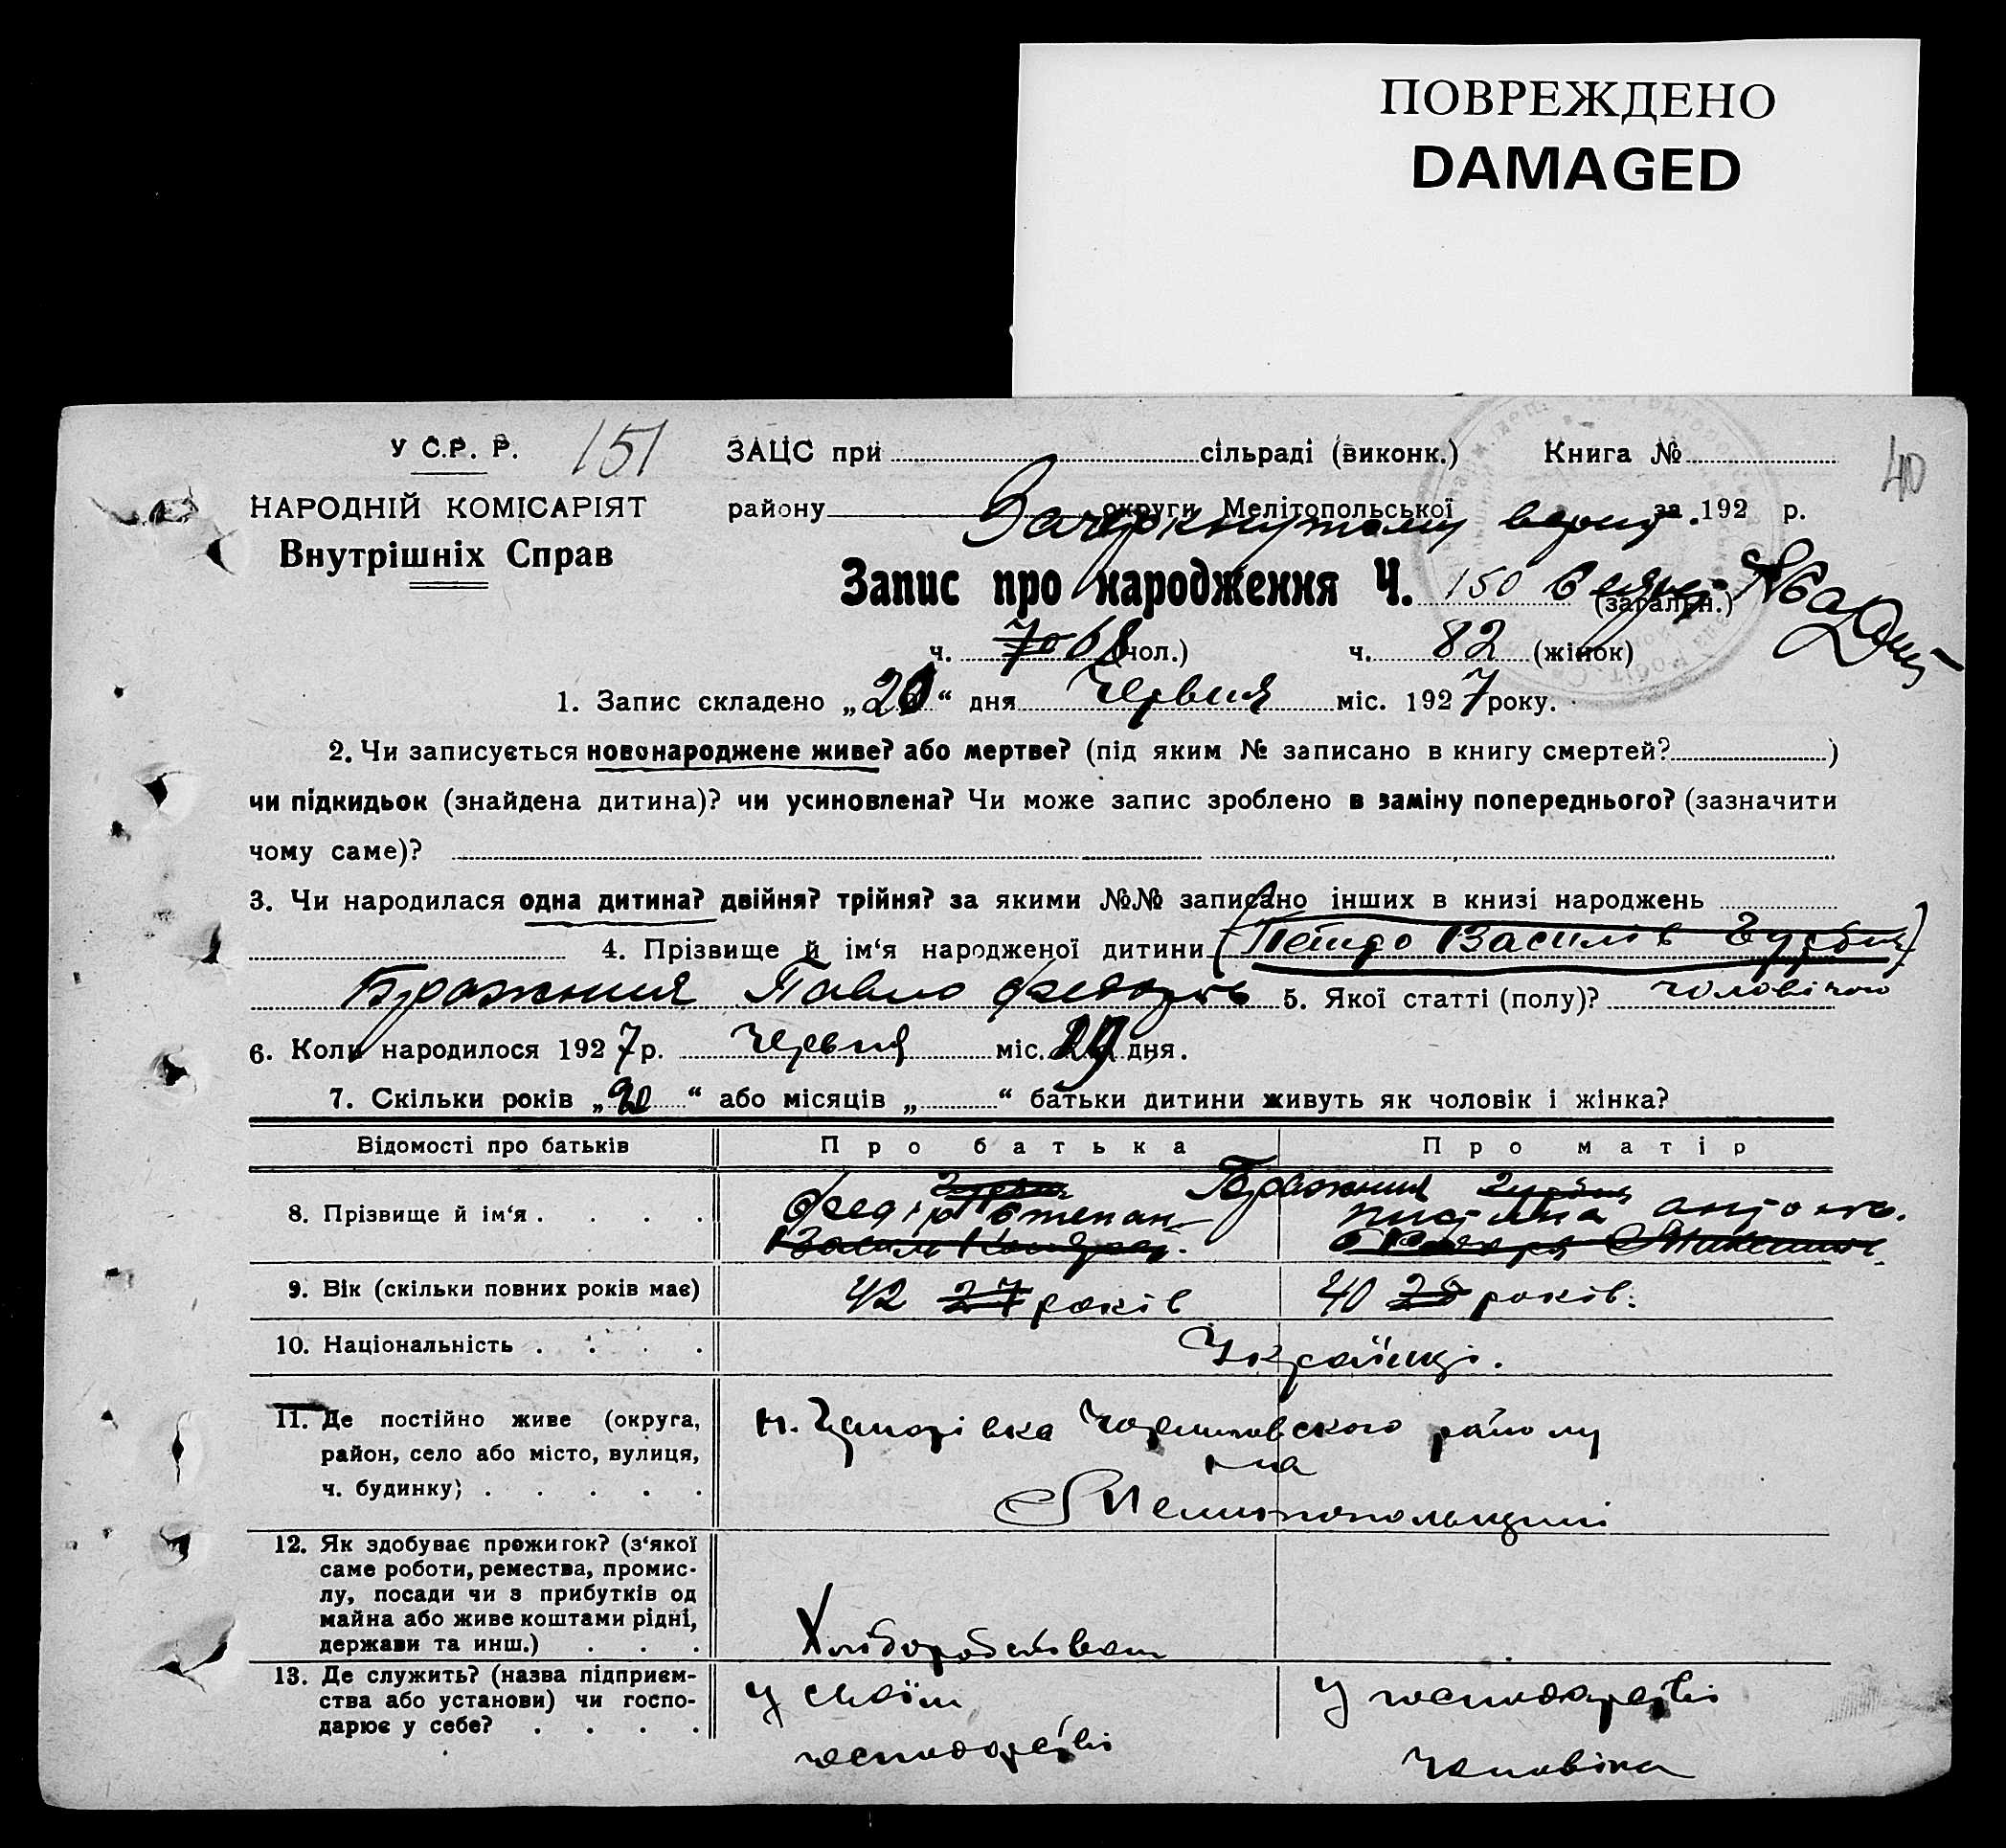 ПОВРЕЖДЕНО
DAMAGED
У С.Р. Р. 151 ЗАЦС при сільраді (виконк.) Книга № 40
НАРОДНІЙ КОМІСАРІЯТ району округи Мелітопольської за 192 р.
Внутрішніх Справ
Зачеркнутому верить.
Запис про народження Ч. 150 (загальн.)
ч. 70 68 (чол.) ч. 82 (жінок)
1. Запис складено „20“ дня Червня міс. 1927 року.
2. Чи записується новонароджене живе? або мертве? (під яким № записано в книгу смертей? )
чи підкидьок (знайдена дитина)? чи усиновлена? Чи може запис зроблено в заміну попереднього? (зазначити
чому саме)?
3. Чи народилася одна дитина? двійня? трійня? за якими №№ записано інших в книзі народжень
4. Прізвище й ім‘я народженої дитини (Петро Василів )
Бражник Павло Федорів 5. Якої статті (полу)? чоловічою
6. Коли народилося 1927 р. Червня міс. дня.
7. Скільки років „20“ або місяців „ “ батьки дитини живуть як чоловік і жінка?
Відомості про батьків Про батька Про матір
Бражник
8. Прізвище й ім‘я . . . . Федір Степан
9. Вік (скільки повних років має) 42 27 років 40 28 років.
10. Національність . . . . Українці.
11. Де постійно живе (округа, район, село або місто, вулиця, ч. будинку) . . . . .
району
на
Мелитопольщині
12. Як здобуває прожиток? (з‘якої
саме роботи, ремества, промис-
лу, посади чи з прибутків од
майна або живе коштами рідні,
держави та инш.) . . . Хліборобством
13. Де служить? (назва підприєм-
ства або установи) чи госпо-
дарює у себе? . . . .
у своїм господарстві
У господарстві чоловіка